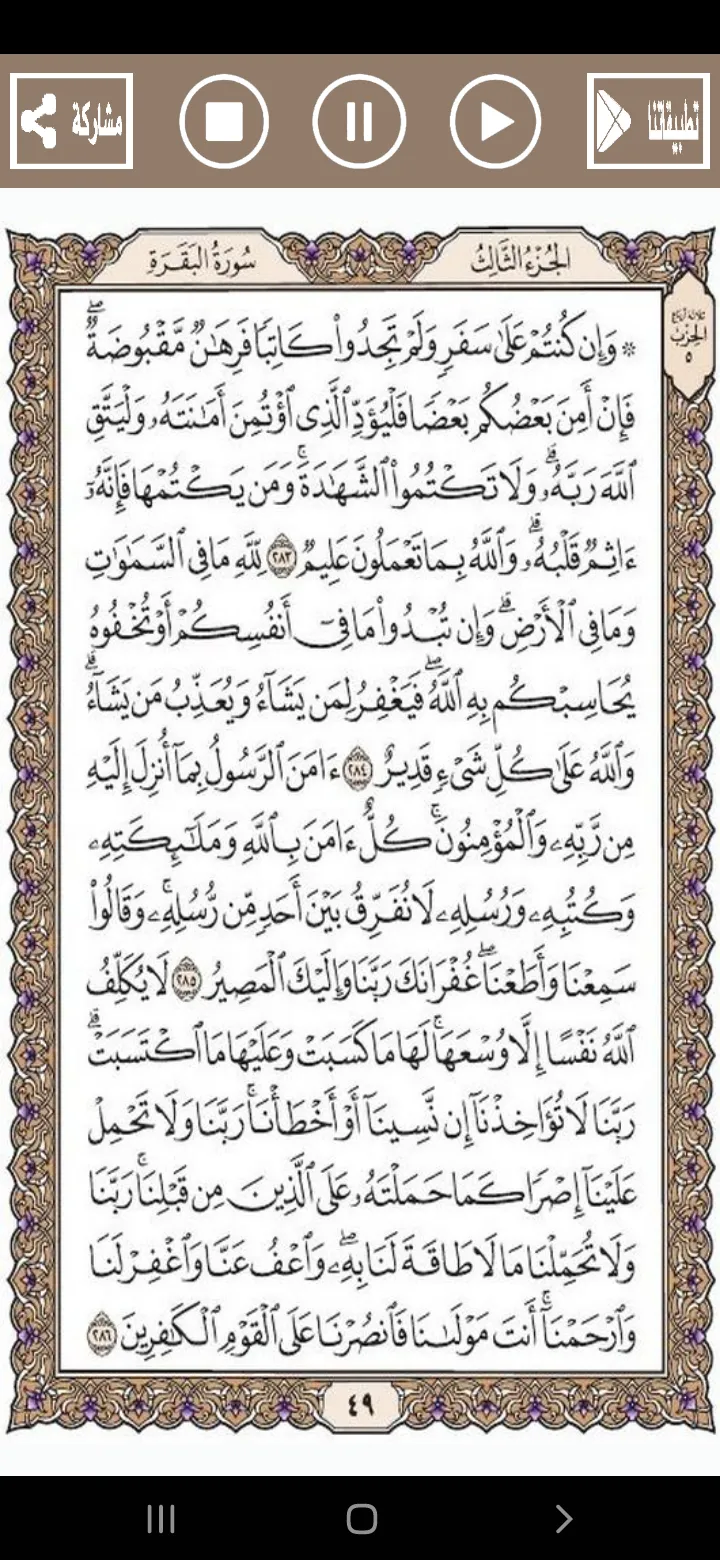 مشاركة
تطبيقاتنا
الجُزْءُ الثَّالِثُ
سُورَةُ البَقَرَةِ
ثلاثة أرباع
الحِزْب
٥
۞ وَإِن كُنتُمْ عَلَىٰ سَفَرٍ وَلَمْ تَجِدُوا۟ كَاتِبًا فَرِهَـٰنٌ مَّقْبُوضَةٌ ۖ
فَإِنْ أَمِنَ بَعْضُكُم بَعْضًا فَلْيُؤَدِّ ٱلَّذِى ٱؤْتُمِنَ أَمَـٰنَتَهُۥ وَلْيَتَّقِ
ٱللَّهَ رَبَّهُۥ ۗ وَلَا تَكْتُمُوا۟ ٱلشَّهَـٰدَةَ ۚ وَمَن يَكْتُمْهَا فَإِنَّهُۥٓ
ءَاثِمٌ قَلْبُهُۥ ۗ وَٱللَّهُ بِمَا تَعْمَلُونَ عَلِيمٌ ٢٨٣ لِّلَّهِ مَا فِى ٱلسَّمَـٰوَٰتِ
وَمَا فِى ٱلْأَرْضِ ۗ وَإِن تُبْدُوا۟ مَا فِىٓ أَنفُسِكُمْ أَوْ تُخْفُوهُ
يُحَاسِبْكُم بِهِ ٱللَّهُ ۖ فَيَغْفِرُ لِمَن يَشَآءُ وَيُعَذِّبُ مَن يَشَآءُ ۗ
وَٱللَّهُ عَلَىٰ كُلِّ شَىْءٍ قَدِيرٌ ٢٨٤ ءَامَنَ ٱلرَّسُولُ بِمَآ أُنزِلَ إِلَيْهِ
مِن رَّبِّهِۦ وَٱلْمُؤْمِنُونَ ۚ كُلٌّ ءَامَنَ بِٱللَّهِ وَمَلَـٰٓئِكَتِهِۦ
وَكُتُبِهِۦ وَرُسُلِهِۦ لَا نُفَرِّقُ بَيْنَ أَحَدٍ مِّن رُّسُلِهِۦ ۚ وَقَالُوا۟
سَمِعْنَا وَأَطَعْنَا ۖ غُفْرَانَكَ رَبَّنَا وَإِلَيْكَ ٱلْمَصِيرُ ٢٨٥ لَا يُكَلِّفُ
ٱللَّهُ نَفْسًا إِلَّا وُسْعَهَا ۚ لَهَا مَا كَسَبَتْ وَعَلَيْهَا مَا ٱكْتَسَبَتْ ۗ
رَبَّنَا لَا تُؤَاخِذْنَآ إِن نَّسِينَآ أَوْ أَخْطَأْنَا ۚ رَبَّنَا وَلَا تَحْمِلْ
عَلَيْنَآ إِصْرًا كَمَا حَمَلْتَهُۥ عَلَى ٱلَّذِينَ مِن قَبْلِنَا ۚ رَبَّنَا
وَلَا تُحَمِّلْنَا مَا لَا طَاقَةَ لَنَا بِهِۦ ۖ وَٱعْفُ عَنَّا وَٱغْفِرْ لَنَا
وَٱرْحَمْنَآ ۚ أَنتَ مَوْلَىٰنَا فَٱنصُرْنَا عَلَى ٱلْقَوْمِ ٱلْكَـٰفِرِينَ ٢٨٦
٤٩